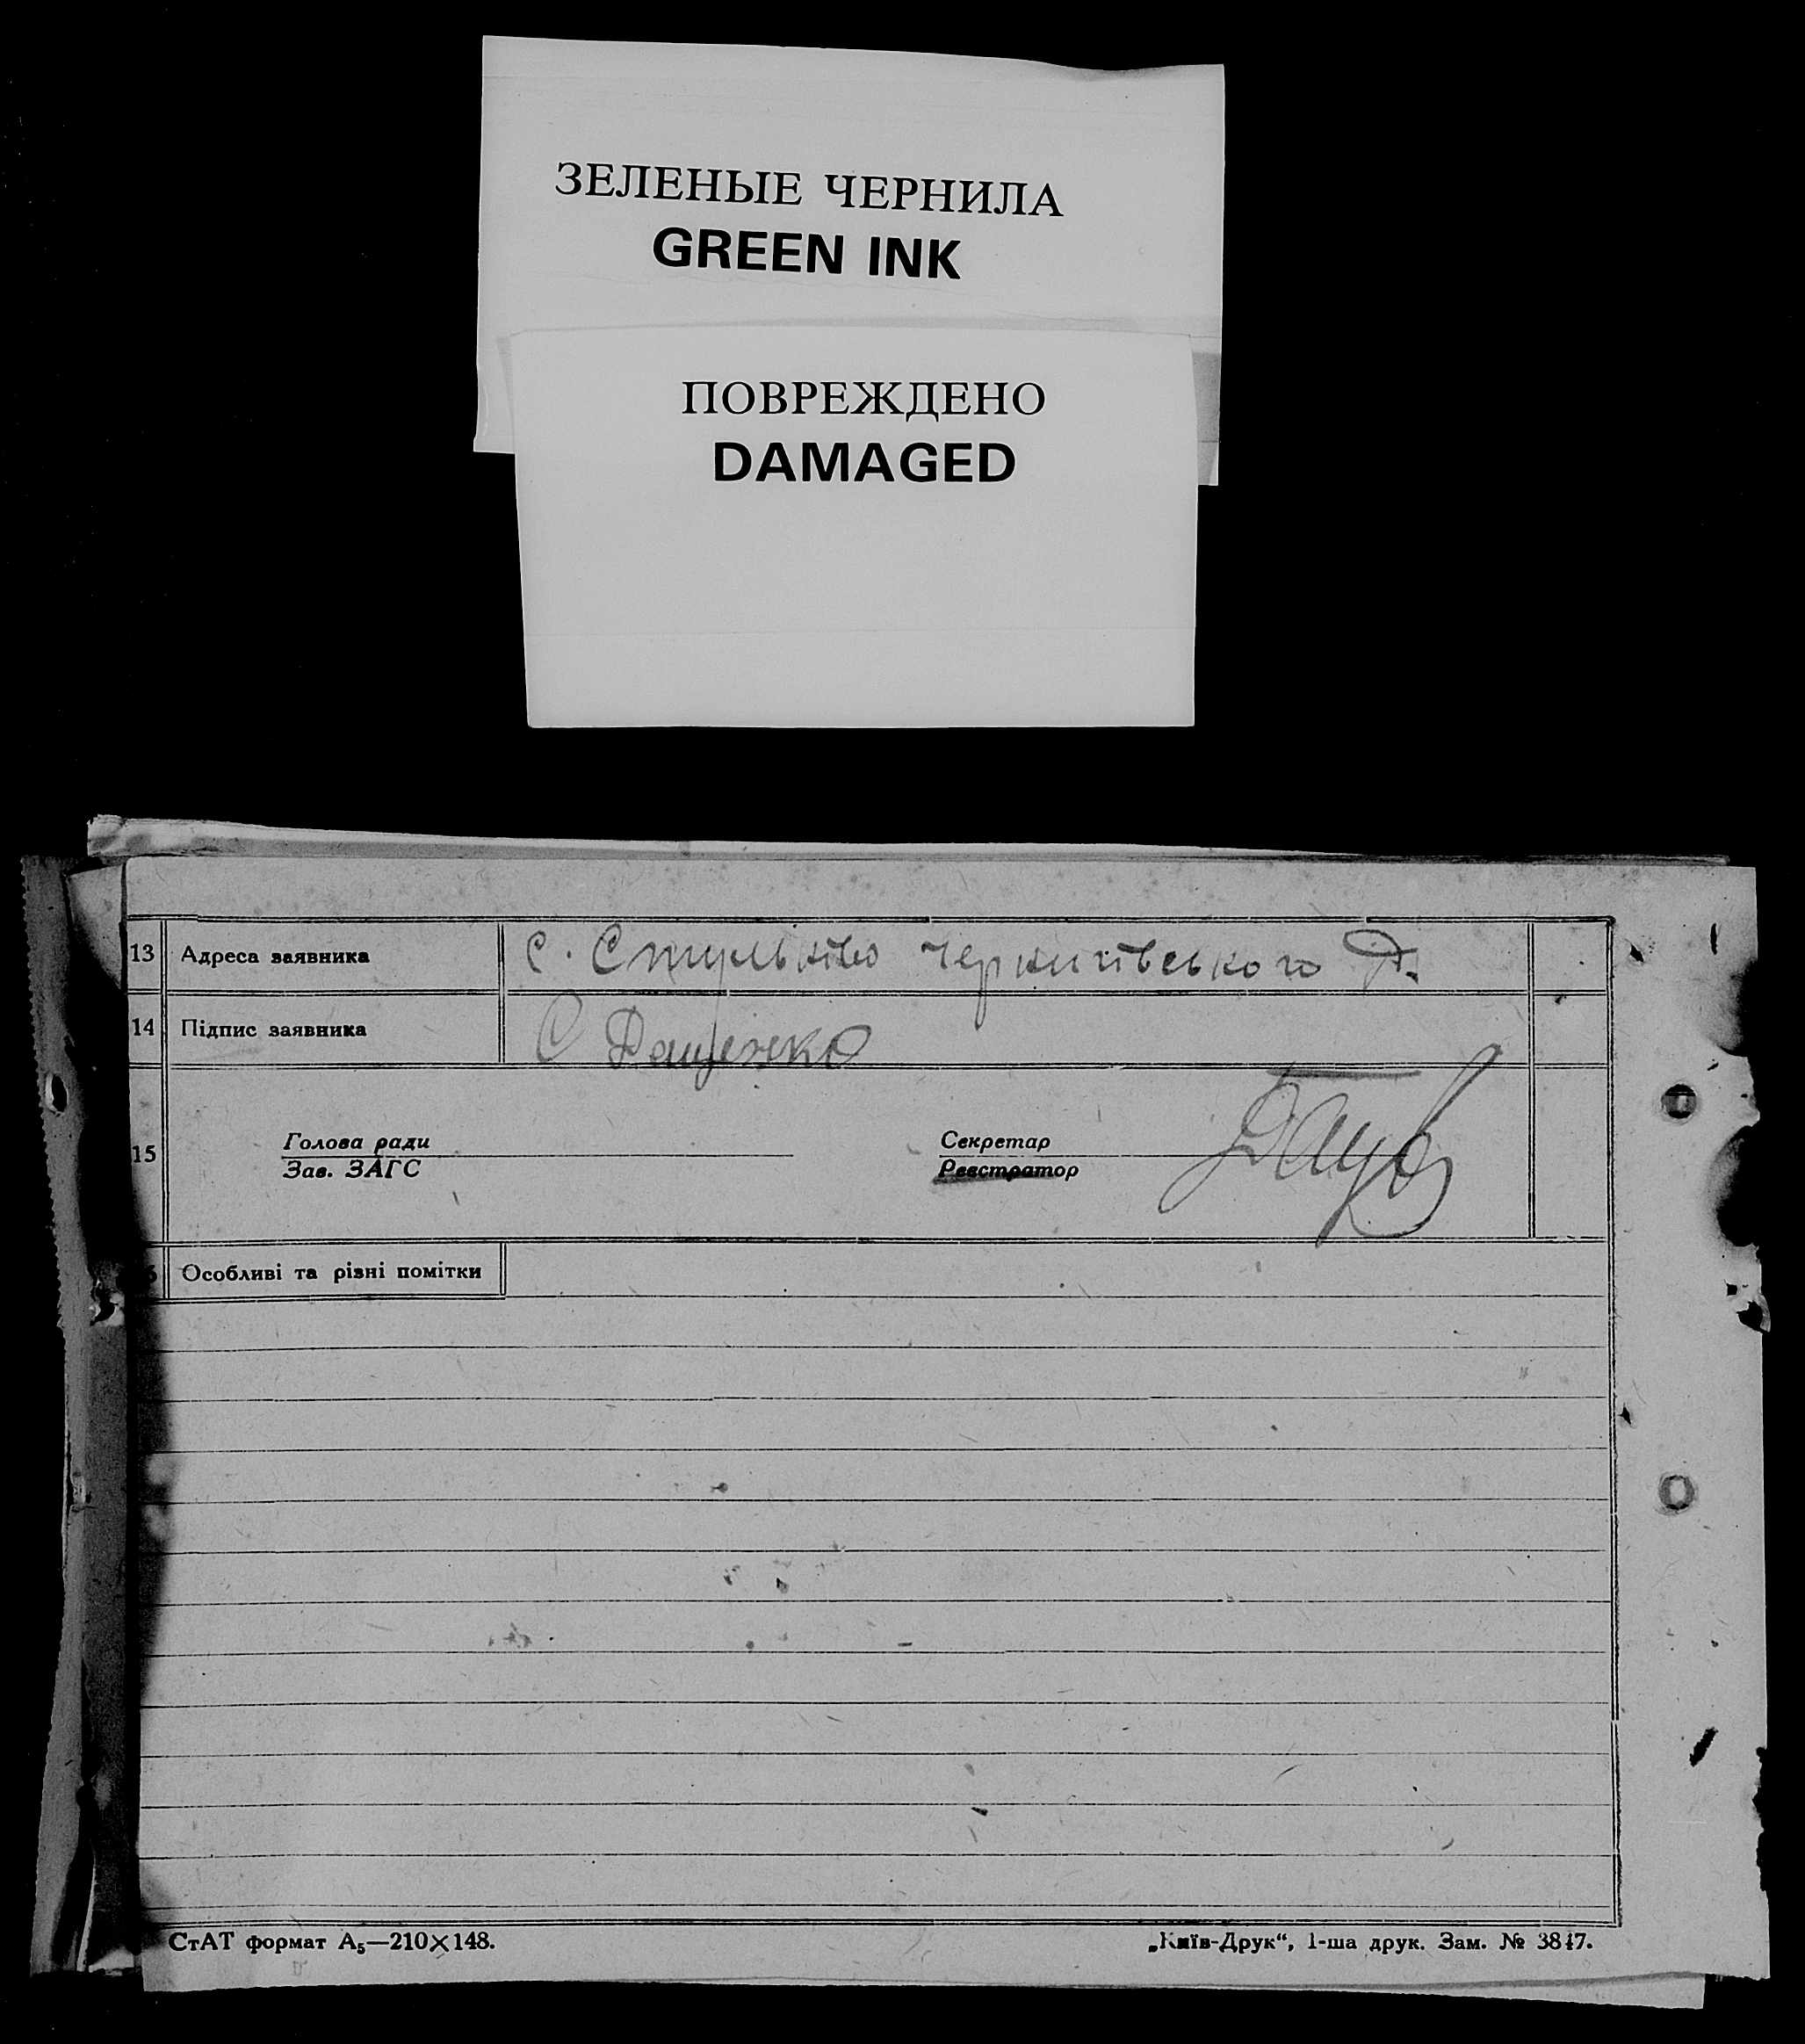 ЗЕЛЕНЫЕ ЧЕРНИЛА
GREEN INK
ПОВРЕЖДЕНО
DAMAGED
13 Адреса заявника с. Чернигівського Р.
14 Підпис заявника С Даценко
15 Голова ради Секретар
Зав. ЗАГС Реєстратор
Особливі та різні помітки
СтАТ формат А₅—210×148. „Київ-Друк“, 1-ша друк. Зам. № 3847.